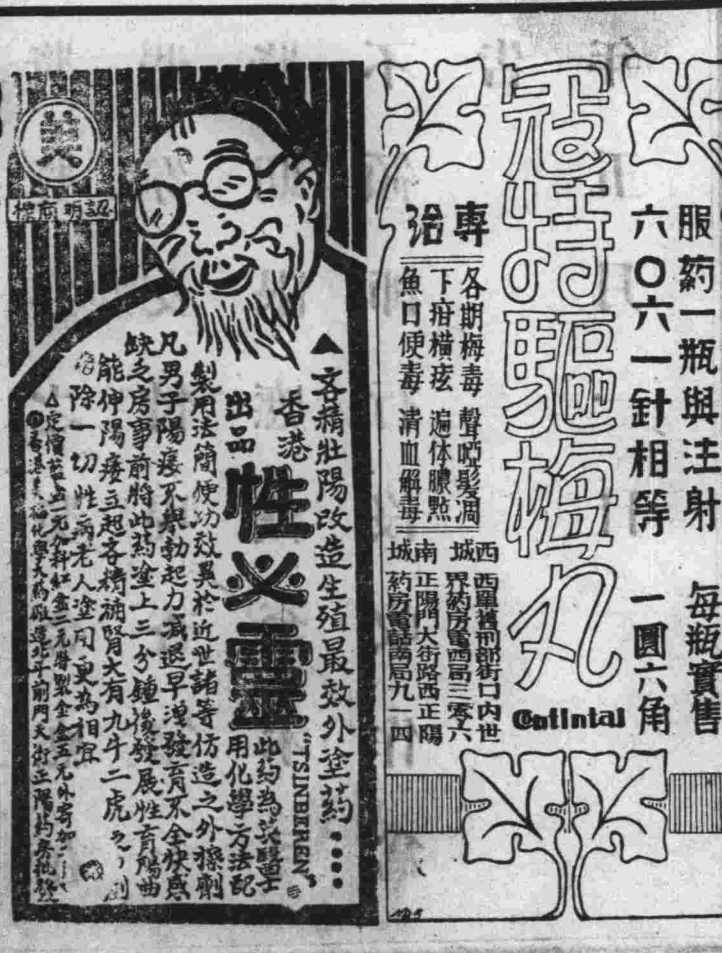 服药一瓶與注射
六〇六一針相等
每瓶實售
一圓六角
冠特驅梅丸
Contintal
專治
各期梅毒 聲啞髮凋
下疳橫痃 遍体膿點
魚口便毒 清血解毒
西城 西單舊刑部街口內世
界药房電西局三零六
南城 正陽門大街路西正陽
药房電話南局九一四
英
認明商標
▲吝精壯陽改造生殖最效外塗药
香港
出品
性必靈
"TSINBEREN"
此药為英醫士
用化學方法配
製用法簡便功效異於近世諸等仿造之外擦劑
凡男子陽痿不舉勃起力減退早洩發育不全快感
缺乏房事前將此药塗上三分鐘後發展性育陽曲
能伸陽痿立起吝精補腎大有九牛二虎之
除一切性病老人塗用更為相宜
△定價藍盒一元加料紅盒二元特製金盒五元外寄加一